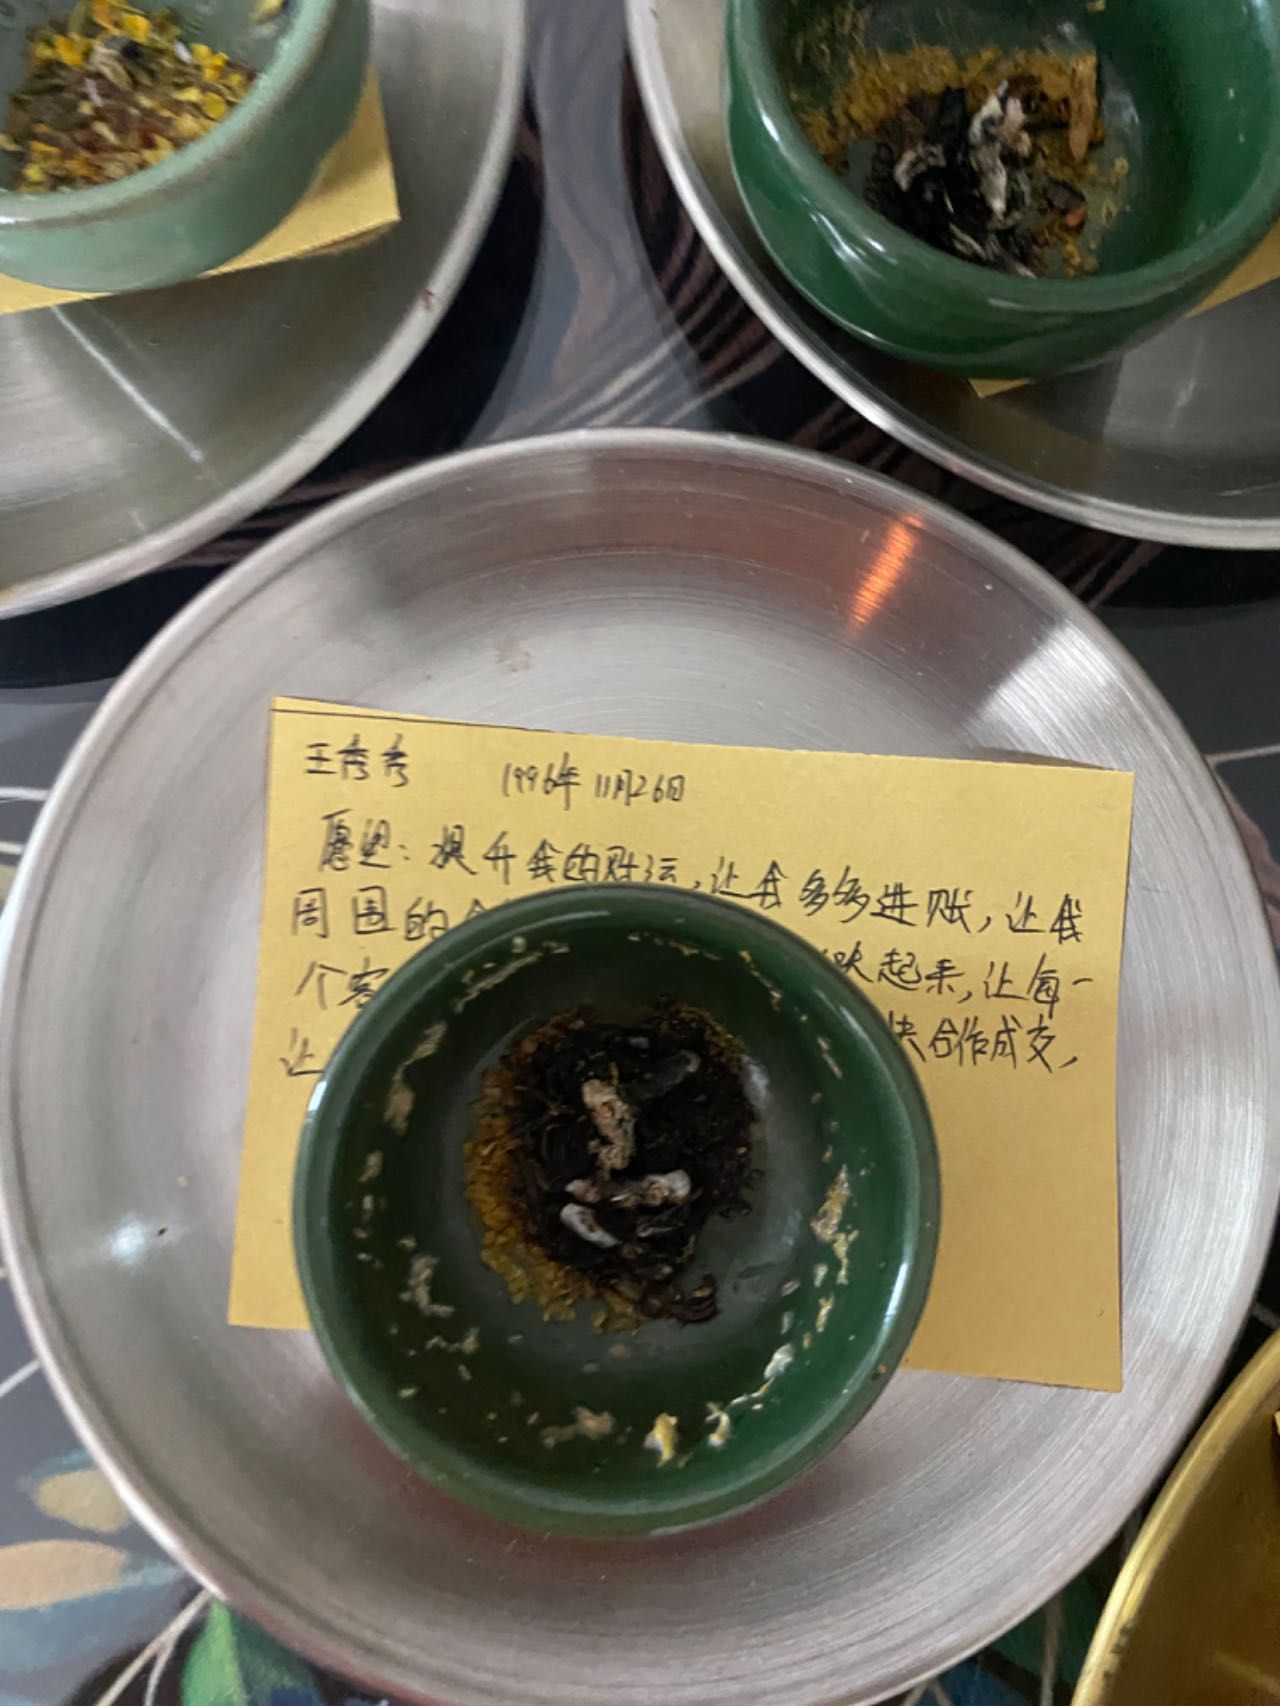 王秀秀 1996年11月26日
愿望：提升我的财运，让我多多进账，让我
周围的
个客 跃起来，让每一
让 快合作成交，